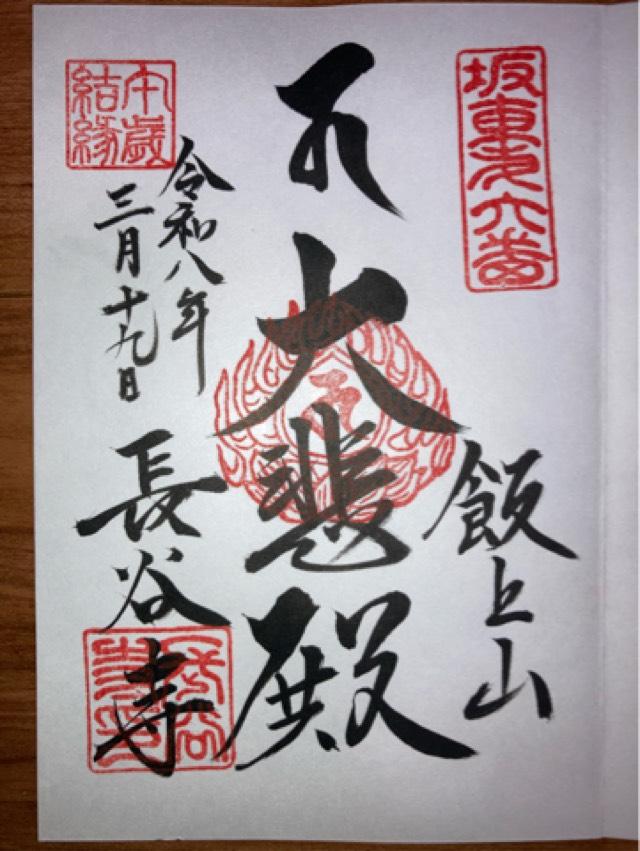 坂東第六番
飯上山
大悲殿
午歳
結縁
令和八年
三月十九日
長谷寺